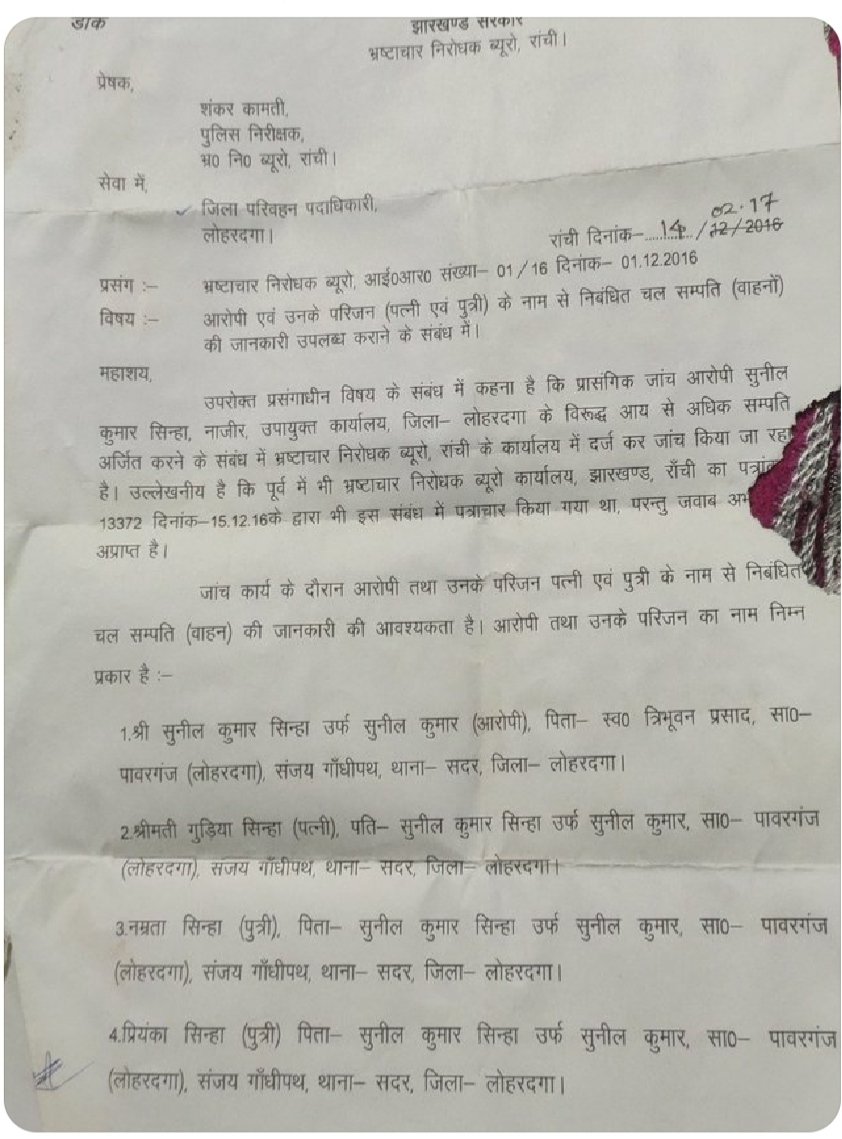 डाक
झारखण्ड सरकार
भ्रष्टाचार निरोधक ब्यूरो, रांची।
प्रेषक,
शंकर कामती,
पुलिस निरीक्षक,
भ्र0 नि0 ब्यूरो, रांची।
सेवा में,
जिला परिवहन पदाधिकारी,
लोहरदगा।
02.17
रांची दिनांक–....14..../12/2016
प्रसंग :– भ्रष्टाचार निरोधक ब्यूरो, आई0आर0 संख्या– 01/16 दिनांक– 01.12.2016
विषय :– आरोपी एवं उनके परिजन (पत्नी एवं पुत्री) के नाम से निबंधित चल सम्पति (वाहनों)
की जानकारी उपलब्ध कराने के संबंध में।
महाशय,
उपरोक्त प्रसंगाधीन विषय के संबंध में कहना है कि प्रासंगिक जांच आरोपी सुनील
कुमार सिन्हा, नाजीर, उपायुक्त कार्यालय, जिला– लोहरदगा के विरूद्ध आय से अधिक सम्पति
अर्जित करने के संबंध में भ्रष्टाचार निरोधक ब्यूरो, रांची के कार्यालय में दर्ज कर जांच किया जा रहा
है। उल्लेखनीय है कि पूर्व में भी भ्रष्टाचार निरोधक ब्यूरो कार्यालय, झारखण्ड, राँची का
13372 दिनांक–15.12.16के द्वारा भी इस संबंध में पत्राचार किया गया था, परन्तु जवाब
अप्राप्त है।
जांच कार्य के दौरान आरोपी तथा उनके परिजन पत्नी एवं पुत्री के नाम से निबंधित
चल सम्पति (वाहन) की जानकारी की आवश्यकता है। आरोपी तथा उनके परिजन का नाम निम्न
प्रकार है :–
1.श्री सुनील कुमार सिन्हा उर्फ सुनील कुमार (आरोपी), पिता– स्व0 त्रिभूवन प्रसाद, सा0–
पावरगंज (लोहरदगा), संजय गाँधीपथ, थाना– सदर, जिला– लोहरदगा।
2.श्रीमती गुड़िया सिन्हा (पत्नी), पति– सुनील कुमार सिन्हा उर्फ सुनील कुमार, सा0– पावरगंज
(लोहरदगा), संजय गाँधीपथ, थाना– सदर, जिला– लोहरदगा।
3.नम्रता सिन्हा (पुत्री), पिता– सुनील कुमार सिन्हा उर्फ सुनील कुमार, सा0– पावरगंज
(लोहरदगा), संजय गाँधीपथ, थाना– सदर, जिला– लोहरदगा।
4.प्रियंका सिन्हा (पुत्री) पिता– सुनील कुमार सिन्हा उर्फ सुनील कुमार, सा0– पावरगंज
(लोहरदगा), संजय गाँधीपथ, थाना– सदर, जिला– लोहरदगा।